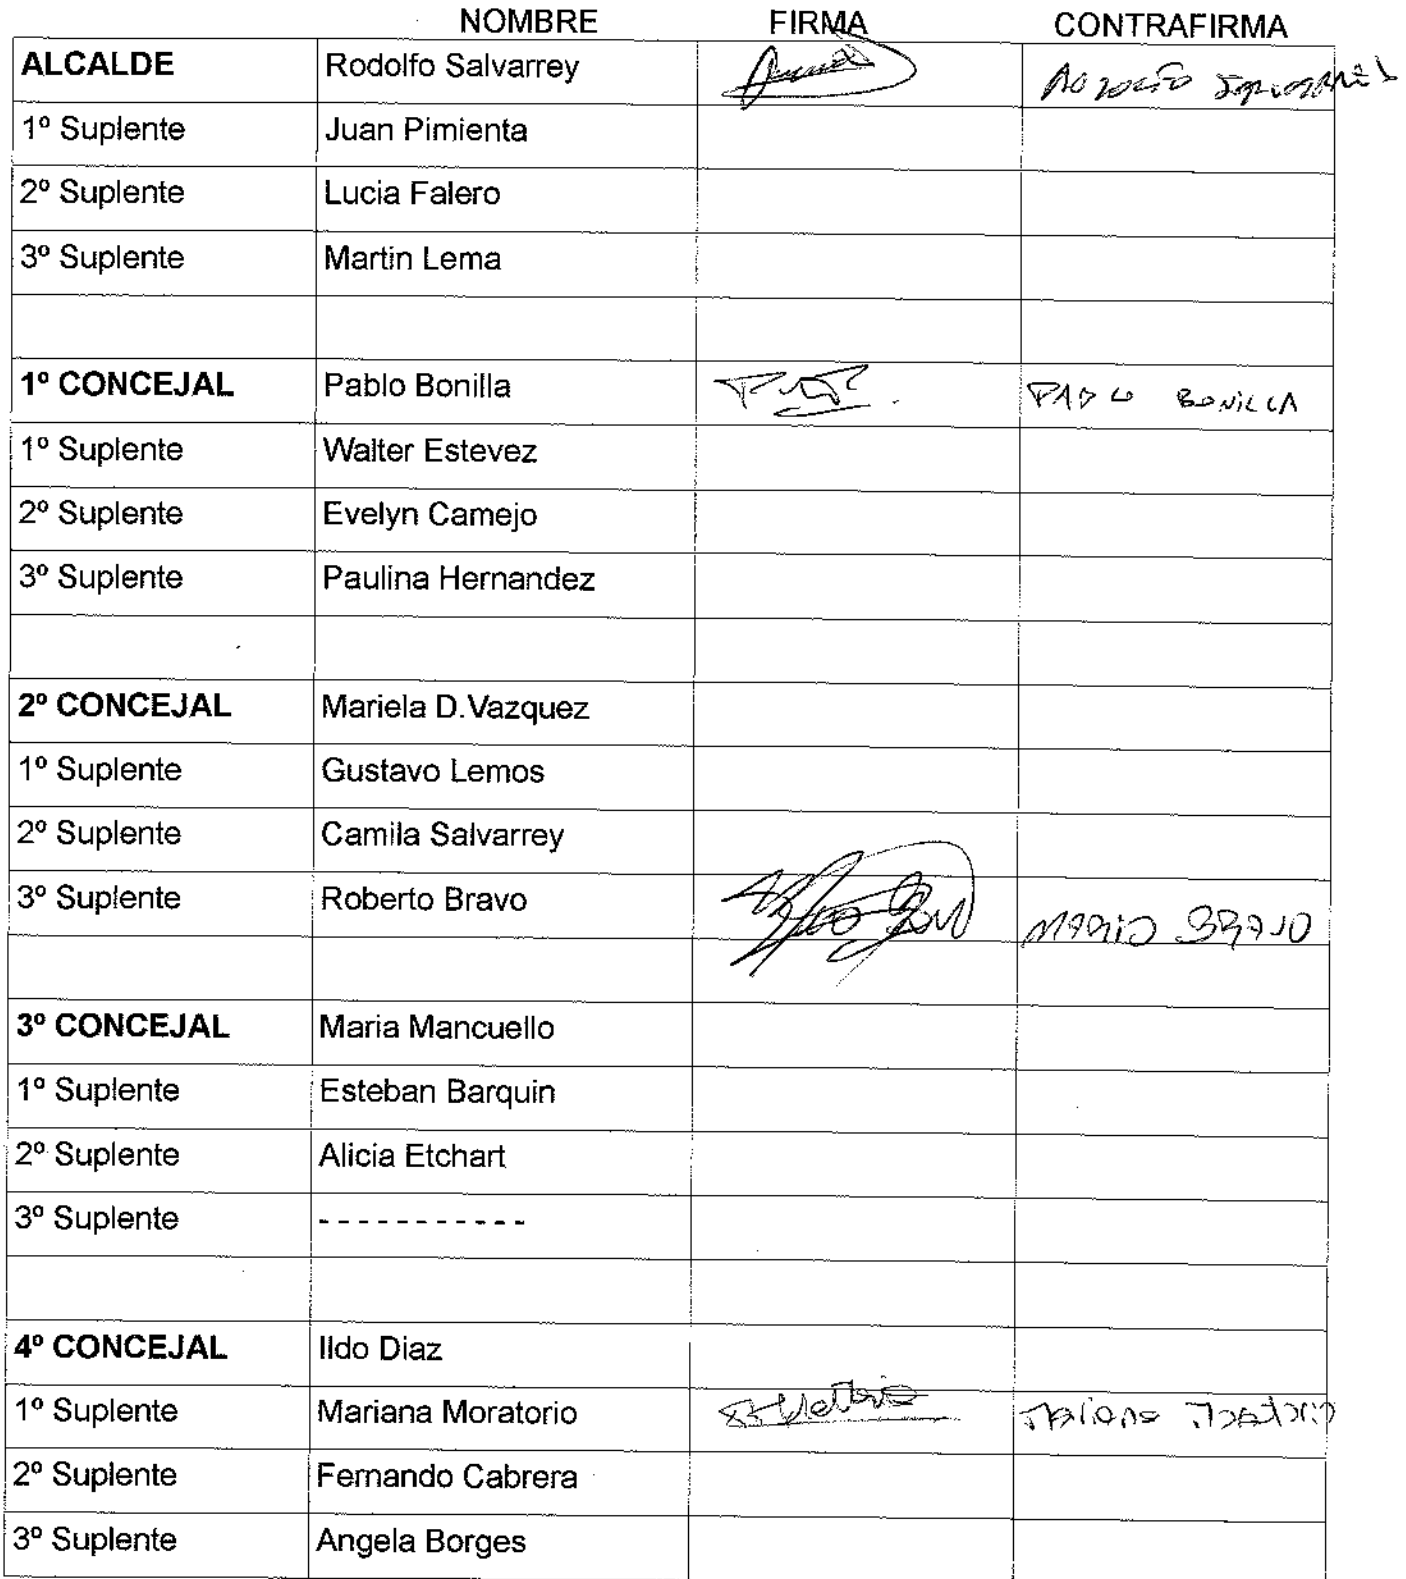 NOMBRE FIRMA CONTRAFIRMA
ALCALDE Rodolfo Salvarrey
1º Suplente Juan Pimienta
2º Suplente Lucia Falero
3º Suplente Martin Lema
1º CONCEJAL Pablo Bonilla PABLO BONILLA
1º Suplente Walter Estevez
2º Suplente Evelyn Camejo
3º Suplente Paulina Hernandez
2º CONCEJAL Mariela D.Vazquez
1º Suplente Gustavo Lemos
2º Suplente Camila Salvarrey
3º Suplente Roberto Bravo MARIO BRAVO
3º CONCEJAL Maria Mancuello
1º Suplente Esteban Barquin
2º Suplente Alicia Etchart
3º Suplente -----------
4º CONCEJAL Ildo Diaz
1º Suplente Mariana Moratorio Mariana Moratorio
2º Suplente Fernando Cabrera
3º Suplente Angela Borges